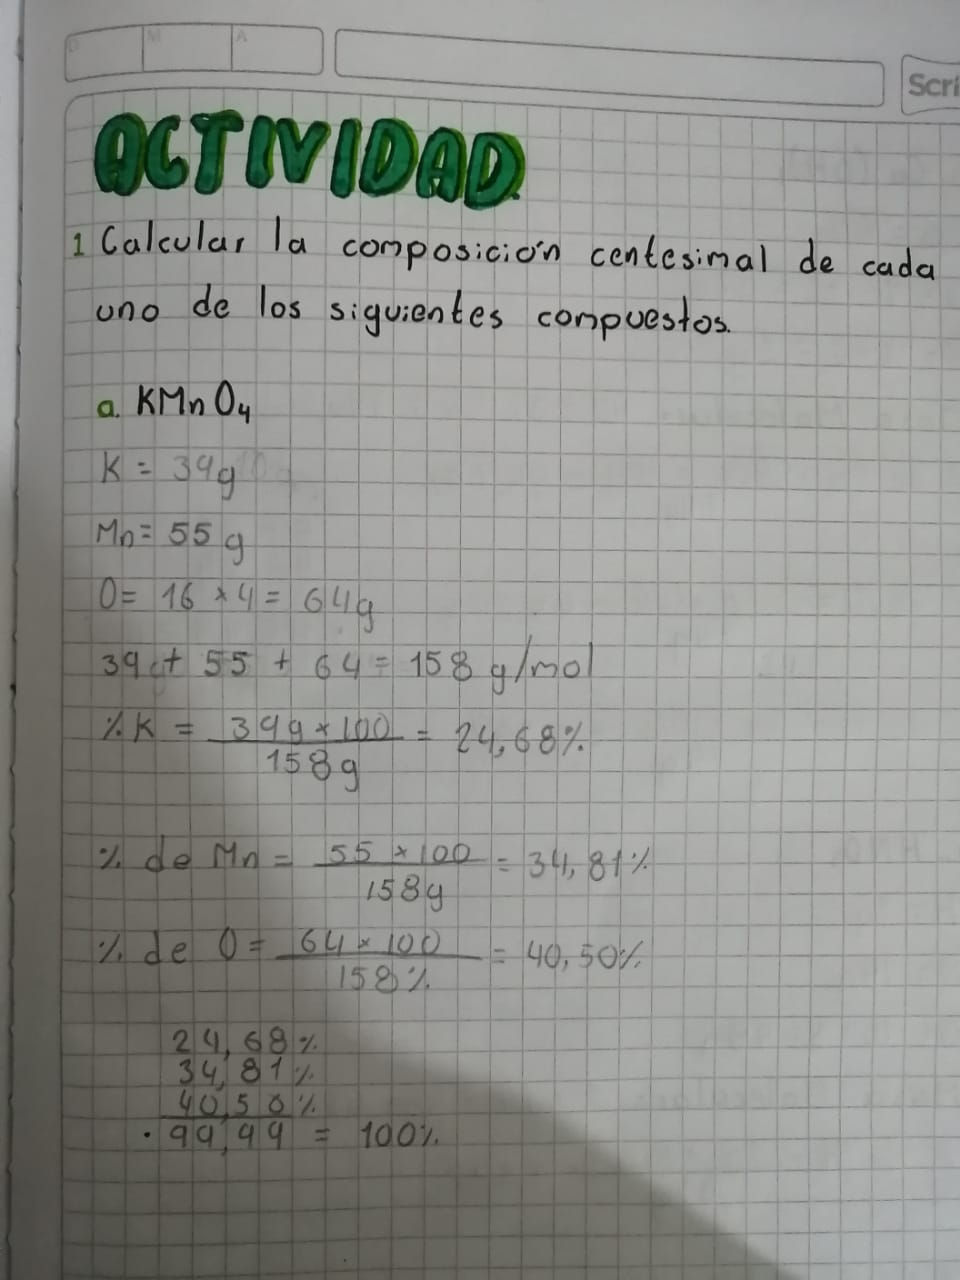 D M A
Scri
ACTIVIDAD.
1 Calcular la composición centesimal de cada
uno de los siguientes compuestos.
a. KMnO4
K = 39g
Mn= 55 g
O= 16 × 4 = 64g
39 + 55 + 64 = 158 g/mol
% K = 39g × 100 / 158g = 24,68%
% de Mn = 55 × 100 / 158g = 34,81%
% de O = 64 × 100 / 158% = 40,50%
24,68%
34,81%
40,50%
99,99 = 100%